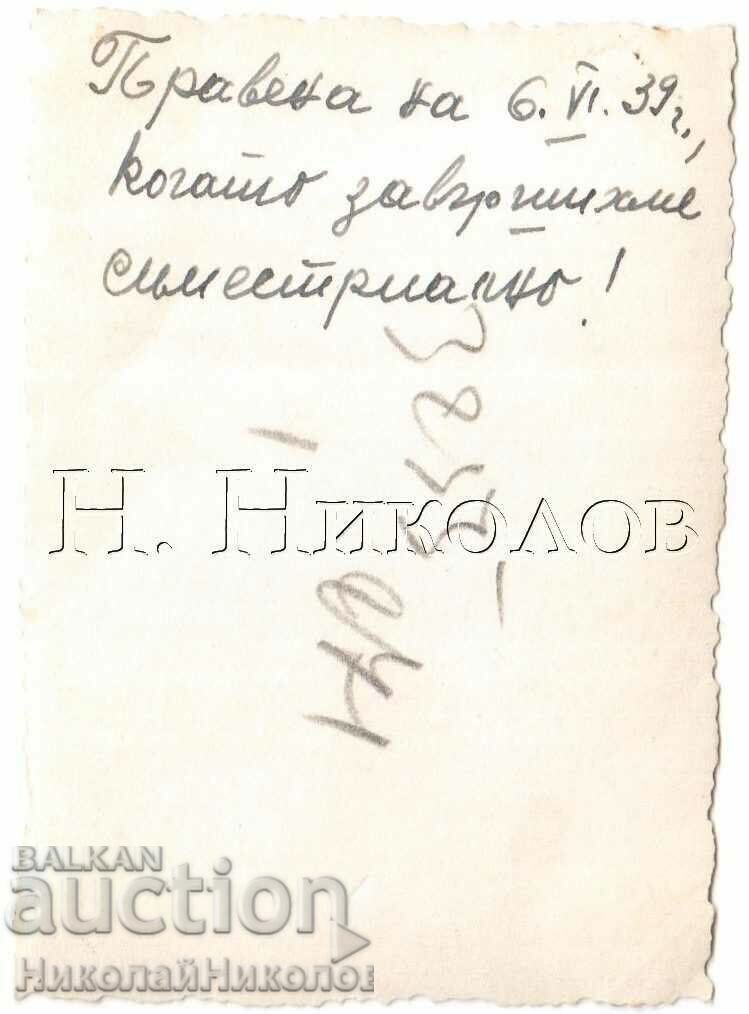 Правена на 6.VI.39г.,
когато завършихме
съместриално!
Н. Николов
BALKAN
auction
НиколайНиколов